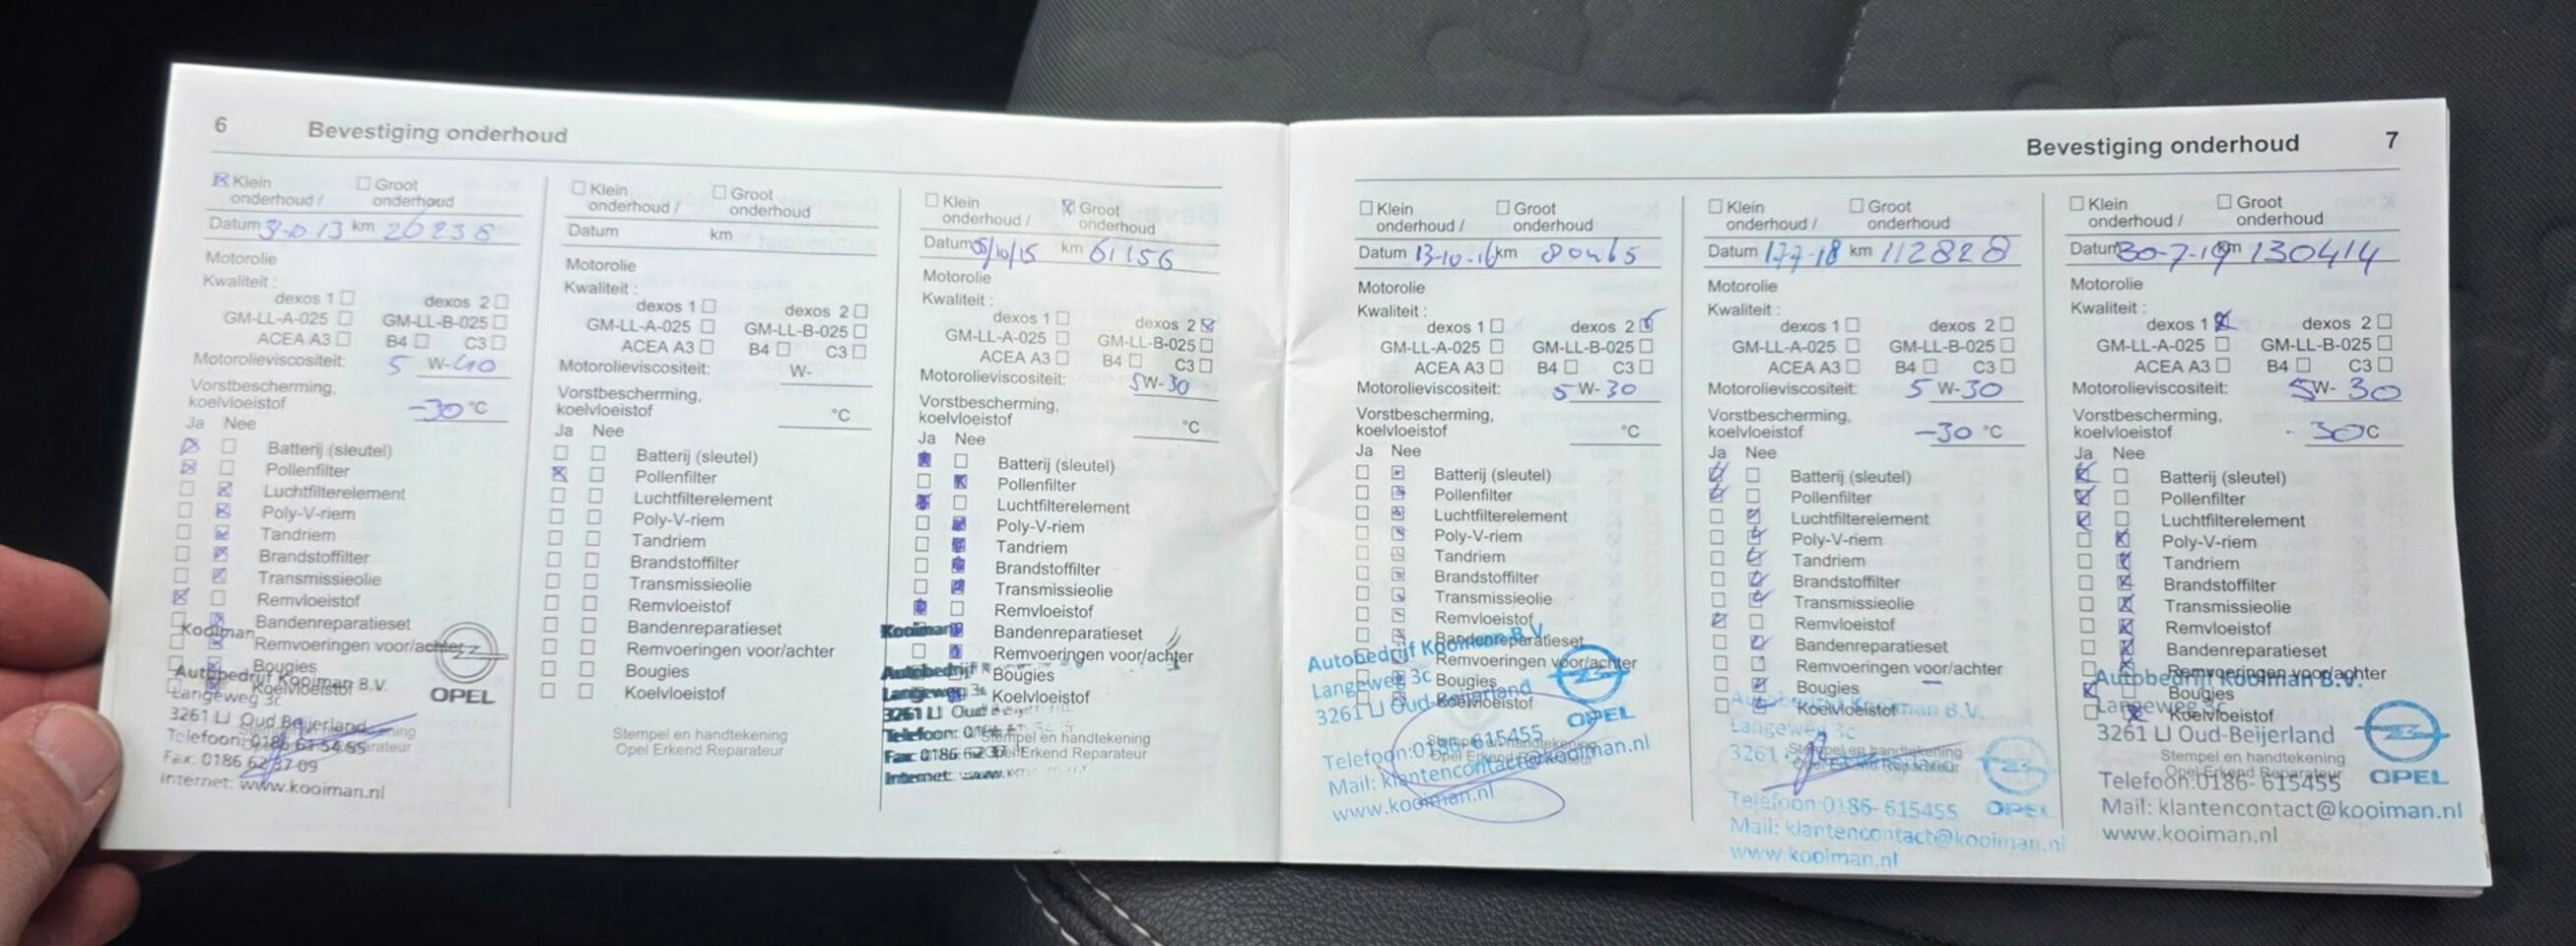 6 Bevestiging onderhoud
Klein onderhoud / Groot onderhoud
Datum km 26238
Motorolie
Kwaliteit :
dexos 1 dexos 2
GM-LL-A-025 GM-LL-B-025
ACEA A3 B4 C3
Motorolieviscositeit: 5 W-40
Vorstbescherming,
koelvloeistof -30 °C
Ja Nee
Batterij (sleutel)
Pollenfilter
Luchtfilterelement
Poly-V-riem
Tandriem
Brandstoffilter
Transmissieolie
Remvloeistof
Bandenreparatieset
Remvoeringen voor/achter
Bougies
Koelvloeistof
Kooiman
Autobedrijf Kooiman B.V.
Langeweg 3c
3261 LJ Oud Beijerland
Telefoon: 0186 61 54 55
Fax: 0186 62 37 09
Internet: www.kooiman.nl
OPEL
Klein onderhoud / Groot onderhoud
Datum km
Motorolie
Kwaliteit :
dexos 1 dexos 2
GM-LL-A-025 GM-LL-B-025
ACEA A3 B4 C3
Motorolieviscositeit: W-
Vorstbescherming,
koelvloeistof °C
Ja Nee
Batterij (sleutel)
Pollenfilter
Luchtfilterelement
Poly-V-riem
Tandriem
Brandstoffilter
Transmissieolie
Remvloeistof
Bandenreparatieset
Remvoeringen voor/achter
Bougies
Koelvloeistof
Stempel en handtekening
Opel Erkend Reparateur
Klein onderhoud / Groot onderhoud
Datum 5/10/15 km 61156
Motorolie
Kwaliteit :
dexos 1 dexos 2
GM-LL-A-025 GM-LL-B-025
ACEA A3 B4 C3
Motorolieviscositeit: 5W-30
Vorstbescherming,
koelvloeistof °C
Ja Nee
Batterij (sleutel)
Pollenfilter
Luchtfilterelement
Poly-V-riem
Tandriem
Brandstoffilter
Transmissieolie
Remvloeistof
Bandenreparatieset
Remvoeringen voor/achter
Bougies
Koelvloeistof
Kooiman
Autobedrijf
Langeweg 3c
3261 LJ Oud
Telefoon:
Stempel en handtekening
Fax: 0186 62 37
Opel Erkend Reparateur
Internet:
Bevestiging onderhoud 7
Klein onderhoud / Groot onderhoud
Datum 13-10-16 km 80465
Motorolie
Kwaliteit :
dexos 1 dexos 2
GM-LL-A-025 GM-LL-B-025
ACEA A3 B4 C3
Motorolieviscositeit: 5 W-30
Vorstbescherming,
koelvloeistof °C
Ja Nee
Batterij (sleutel)
Pollenfilter
Luchtfilterelement
Poly-V-riem
Tandriem
Brandstoffilter
Transmissieolie
Remvloeistof
Bandenreparatieset
Remvoeringen voor/achter
Bougies
Koelvloeistof
Autobedrijf Kooiman B.V.
Langeweg 3c
3261 LJ Oud-Beijerland
OPEL
Telefoon:0186-615455
Mail: klantencontact@kooiman.nl
www.kooiman.nl
Klein onderhoud / Groot onderhoud
Datum 17-7-18 km 112828
Motorolie
Kwaliteit :
dexos 1 dexos 2
GM-LL-A-025 GM-LL-B-025
ACEA A3 B4 C3
Motorolieviscositeit: 5 W-30
Vorstbescherming,
koelvloeistof -30 °C
Ja Nee
Batterij (sleutel)
Pollenfilter
Luchtfilterelement
Poly-V-riem
Tandriem
Brandstoffilter
Transmissieolie
Remvloeistof
Bandenreparatieset
Remvoeringen voor/achter
Bougies
Koelvloeistof
Autobedrijf Kooiman B.V.
Langeweg 3c
3261
Stempel en handtekening
Opel Erkend Reparateur
OPEL
Telefoon:0186-615455
Mail: klantencontact@kooiman.nl
www.kooiman.nl
Klein onderhoud / Groot onderhoud
Datum 30-7-19 km 130414
Motorolie
Kwaliteit :
dexos 1 dexos 2
GM-LL-A-025 GM-LL-B-025
ACEA A3 B4 C3
Motorolieviscositeit: 5W-30
Vorstbescherming,
koelvloeistof - 30°C
Ja Nee
Batterij (sleutel)
Pollenfilter
Luchtfilterelement
Poly-V-riem
Tandriem
Brandstoffilter
Transmissieolie
Remvloeistof
Bandenreparatieset
Remvoeringen voor/achter
Bougies
Koelvloeistof
Autobedrijf Kooiman B.V.
Langeweg 3c
3261 LJ Oud-Beijerland
Stempel en handtekening
Opel Erkend Reparateur
OPEL
Telefoon:0186-615455
Mail: klantencontact@kooiman.nl
www.kooiman.nl